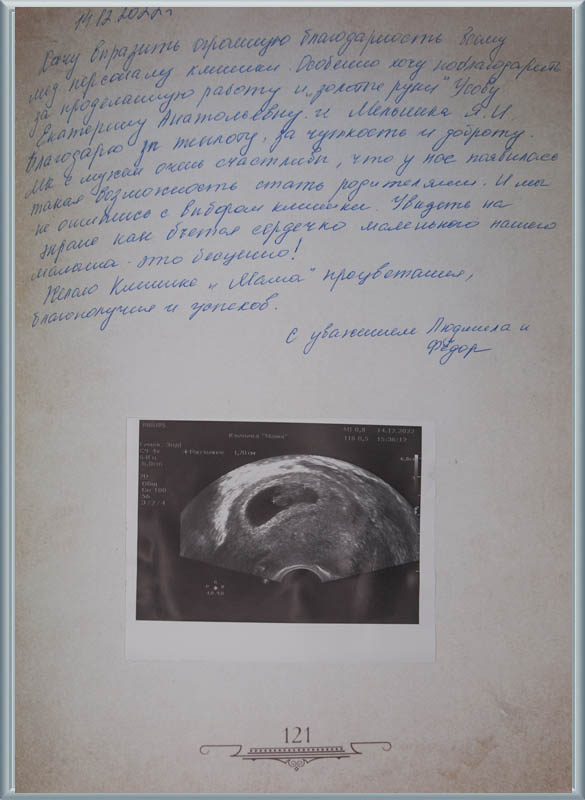 14.12.2022г
Хочу выразить огромную благодарность всему
мед персоналу клиники. Особенно хочу поблагодарить
за проделанную работу и „золотые руки" Усову
Екатерину Анатольевну. и Мельника Я.И
Благодарю за теплоту, за чуткость и доброту.
Мы с мужем очень счастливы, что у нас появилась
такая возможность стать родителями. И мы
не ошиблись с выбором клиники. Увидеть на
экране как бьется сердечко маленького нашего
малыша - это бесценно!
Желаю Клинике „Мама" процветания,
благополучия и успехов.
С уважением Людмила и
Фёдор
Клиника "Мама"
MI 0,8 14.12.2022
TIS 0,5 15:36:19
+Расстояние 1,70 см
2D
121